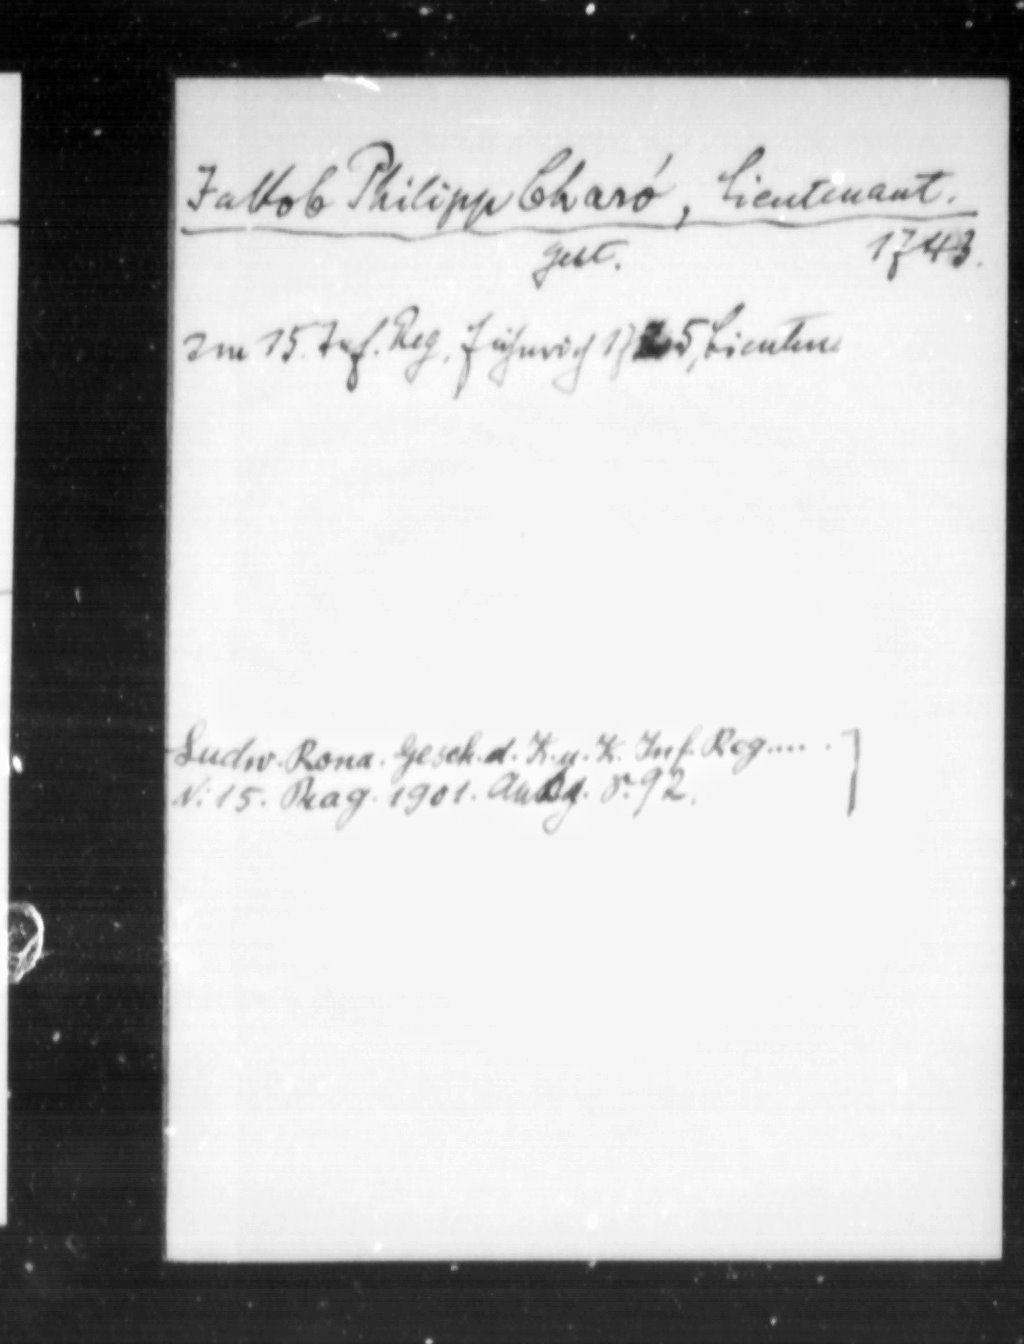 Jakob Philipp Charó, Lieutenant.
gest. 1743.
im 15. Inf. Reg. Fähnrich 1725, Lieuten
Ludw. Rona. Gesch. d. K. u. K. Inf. Reg.... .
N: 15. Prag. 1901. S. 92.